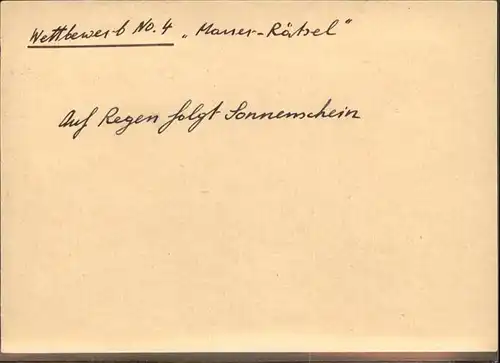 Wettbewerb No. 4 „Mauer-Rätsel"
Auf Regen folgt Sonnenschein